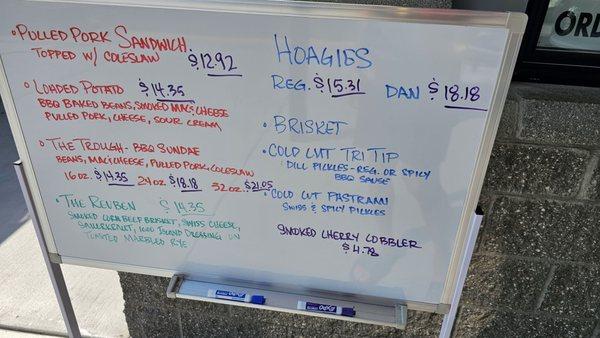 PULLED PORK SANDWICH
TOPPED W/ COLESLAW $12.92
LOADED POTATO $14.35
BBQ BAKED BEANS, SMOKED MAC & CHEESE
PULLED PORK, CHEESE, SOUR CREAM
THE TROUGH - BBQ SUNDAE
BEANS, MAC & CHEESE, PULLED PORK, COLESLAW
16 OZ. $14.35 24 OZ $18.18 32 OZ. $21.05
THE REUBEN $14.35
SMOKED CORN BEEF BRISKET, SWISS CHEESE,
SAUERKRAUT, 1000 ISLAND DRESSING ON
TOASTED MARBLED RYE
HOAGIES
REG. $15.31 DAN $18.18
BRISKET
COLD CUT TRI TIP
DILL PICKLES - REG. OR SPICY
BBQ SAUSE
COLD CUT PASTRAMI
SWISS & SPICY PICKLES
SMOKED CHERRY COBBLER
$4.78
ORD
EXPO